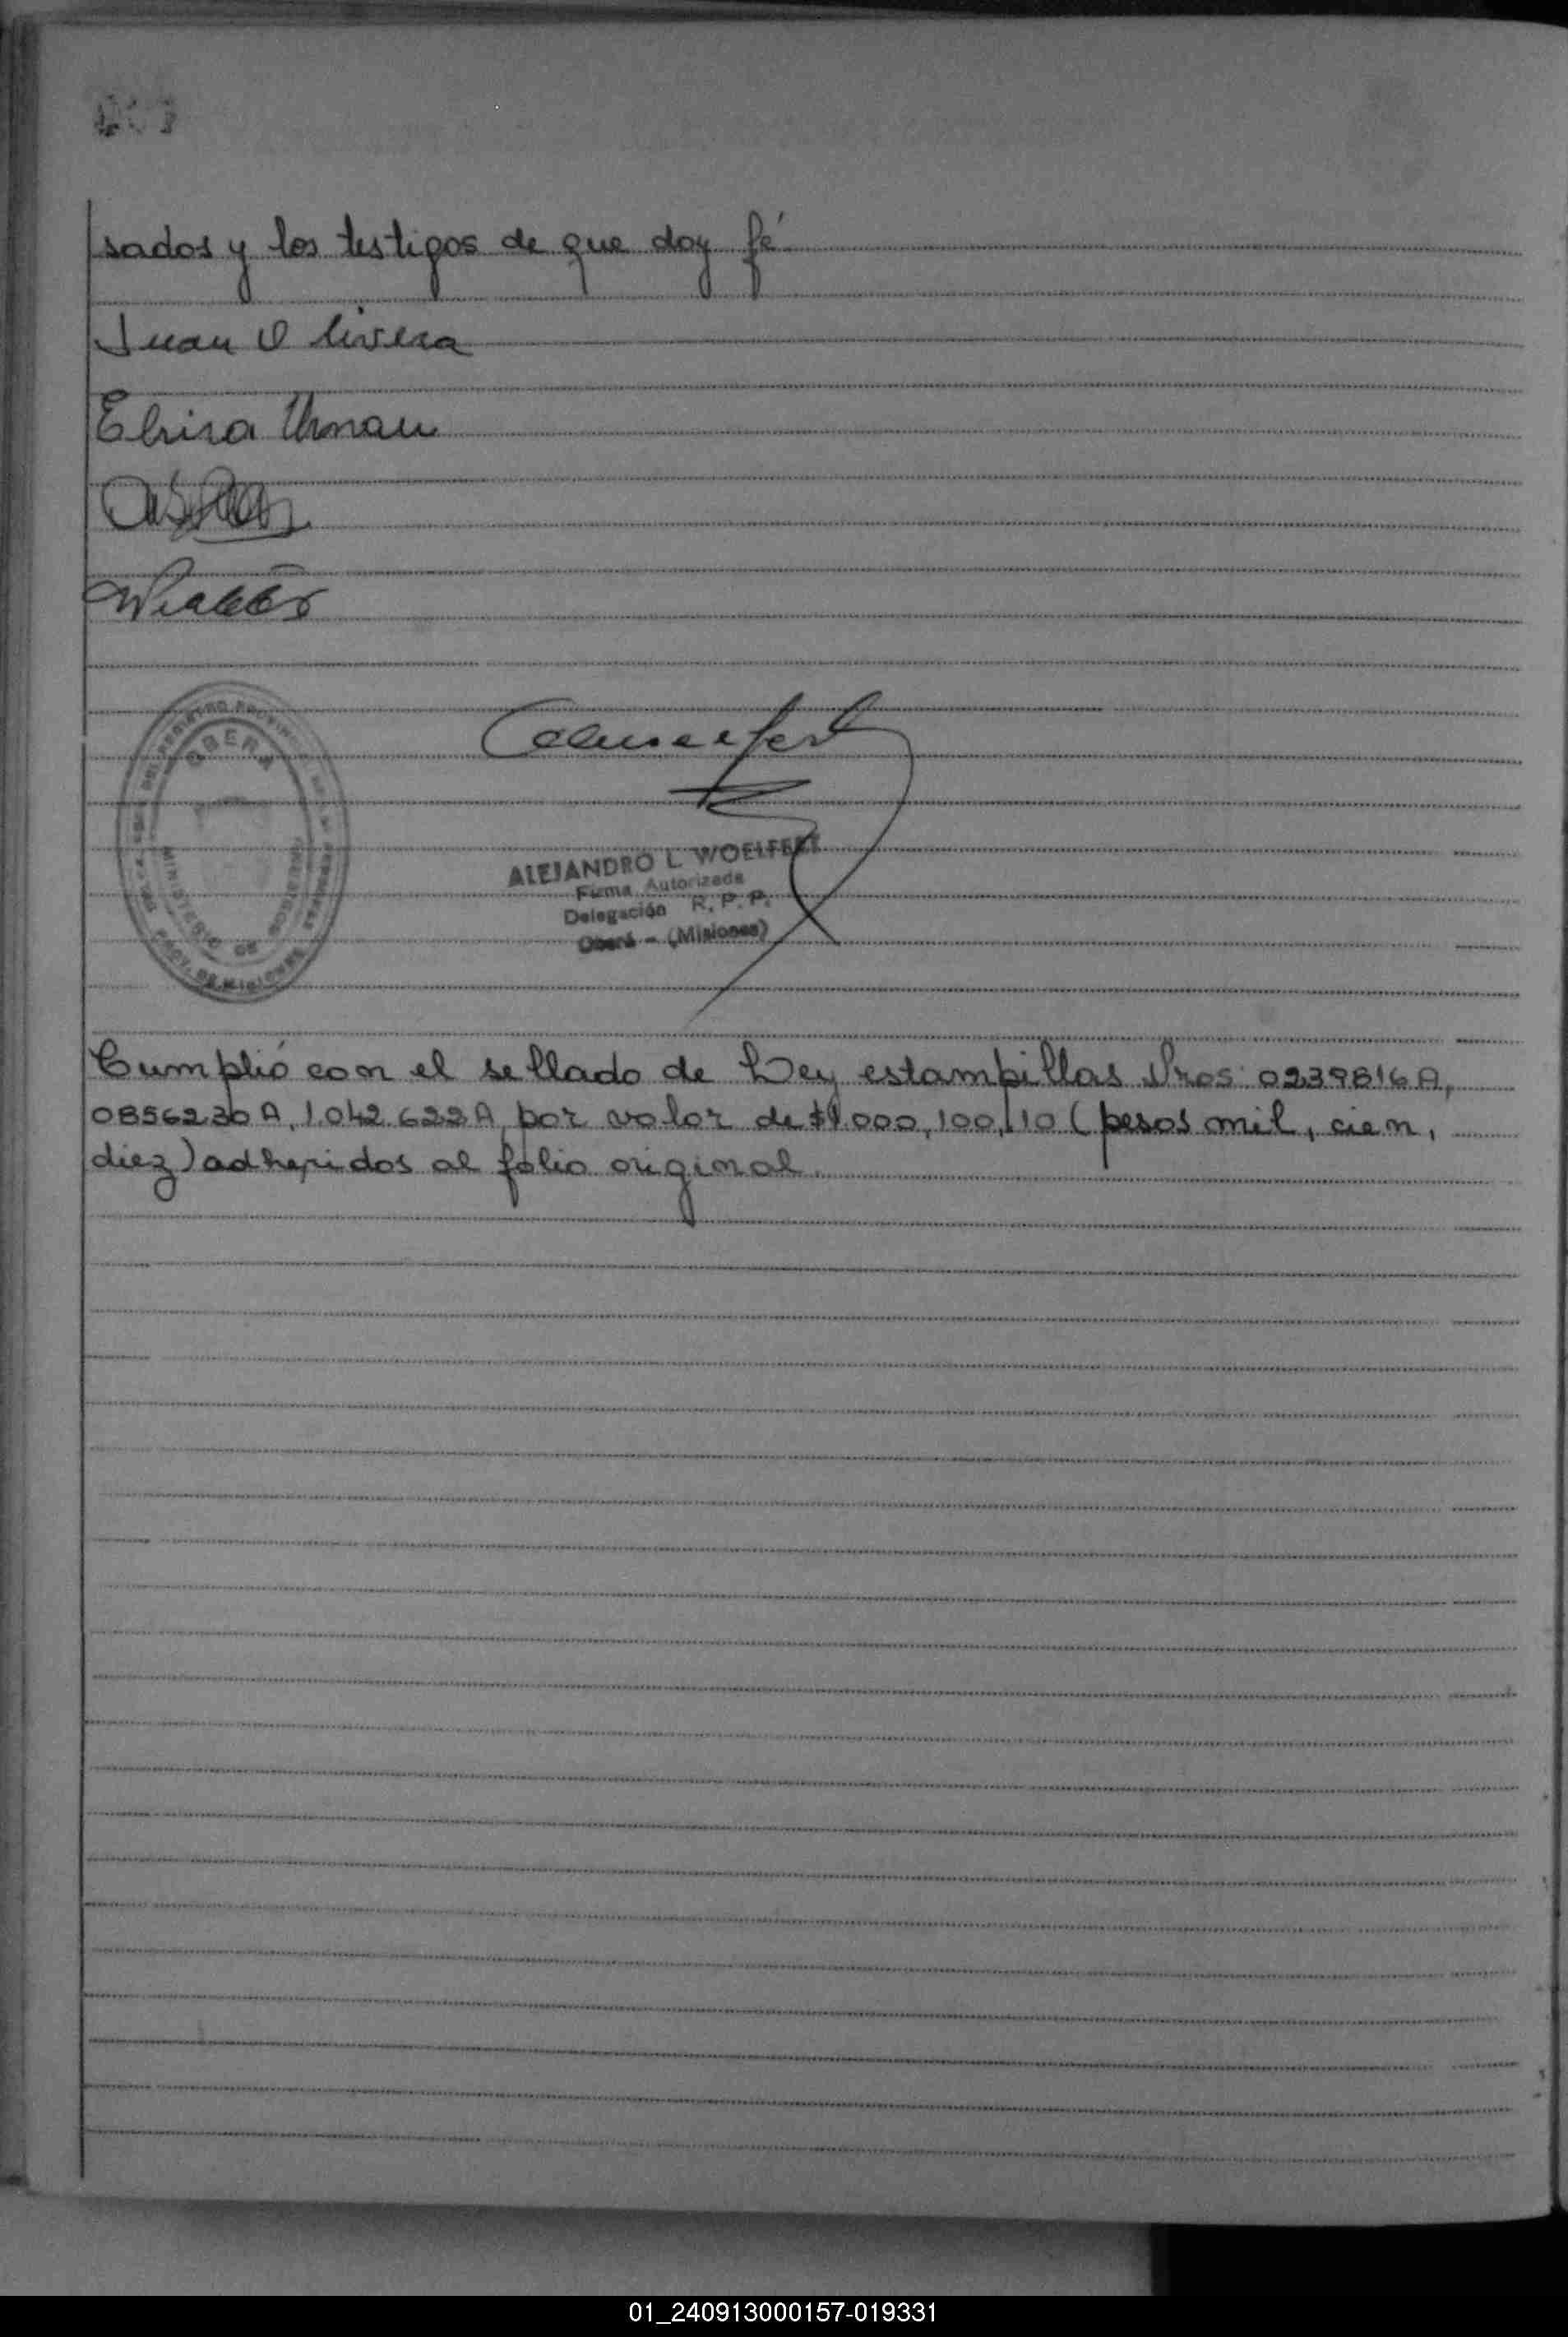 sados y los testigos de que doy fé
Juan Olivera
Elvira Uman
OBERA
MINISTERIO DE
PROV. DE MISIONES
ALEJANDRO L. WOELFERT
Firma Autorizada
Delegación R. P. P.
Oberá - (Misiones)
Cumplió con el sellado de Ley estampillas Nros: 0239816A,
0856230A, 1.042.622A, por valor de $1.000, 100, 10 (pesos mil, cien,
diez) adheridos al folio original.
01_240913000157-019331